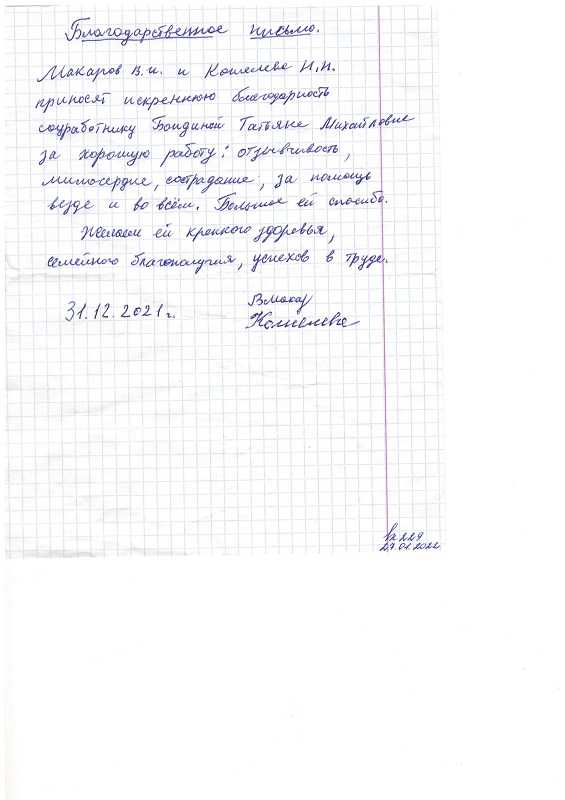 Благодарственное письмо.
Макаров В.И. и Кошелева Н.Н.
приносят искреннюю благодарность
соцработнику Бондиной Татьяне Михайловне
за хорошую работу: отзывчивость,
милосердие, сострадание, за помощь
везде и во всём. Большое ей спасибо.
Желаем ей крепкого здоровья,
семейного благополучия, успехов в труде.
31.12.2021 г.
ВМакар
Кошелева
Вх 229
27.01.2022